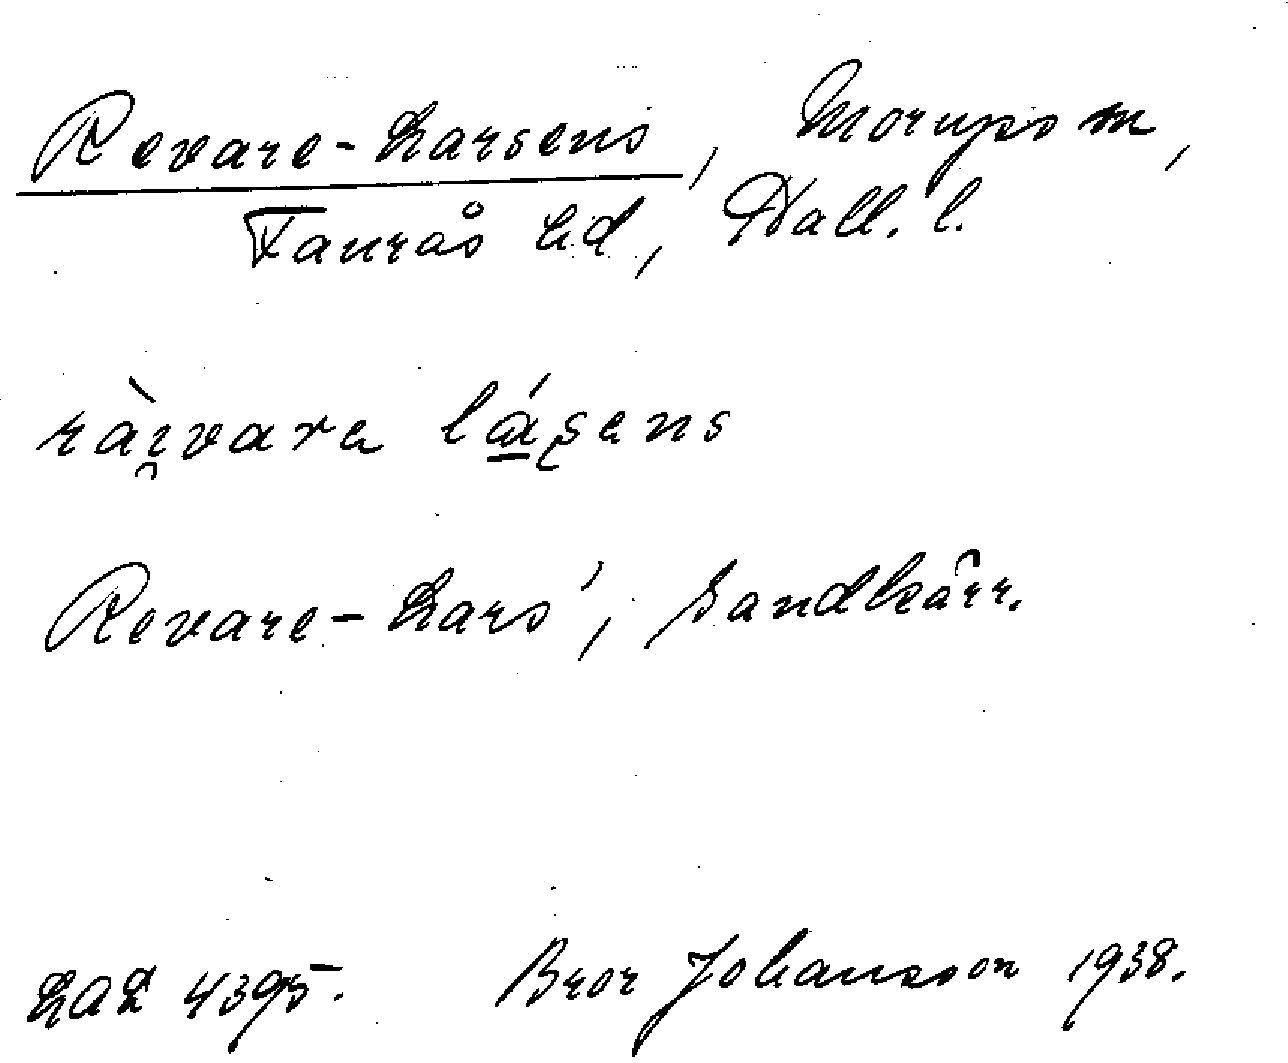 Revare-Larsens, Morups sn,
Faurås hd, Hall. l.
rài̯vara lá̱şans
Revare-Lars', Sandkärr.
LAL 4395. Bror Johansson 1938.